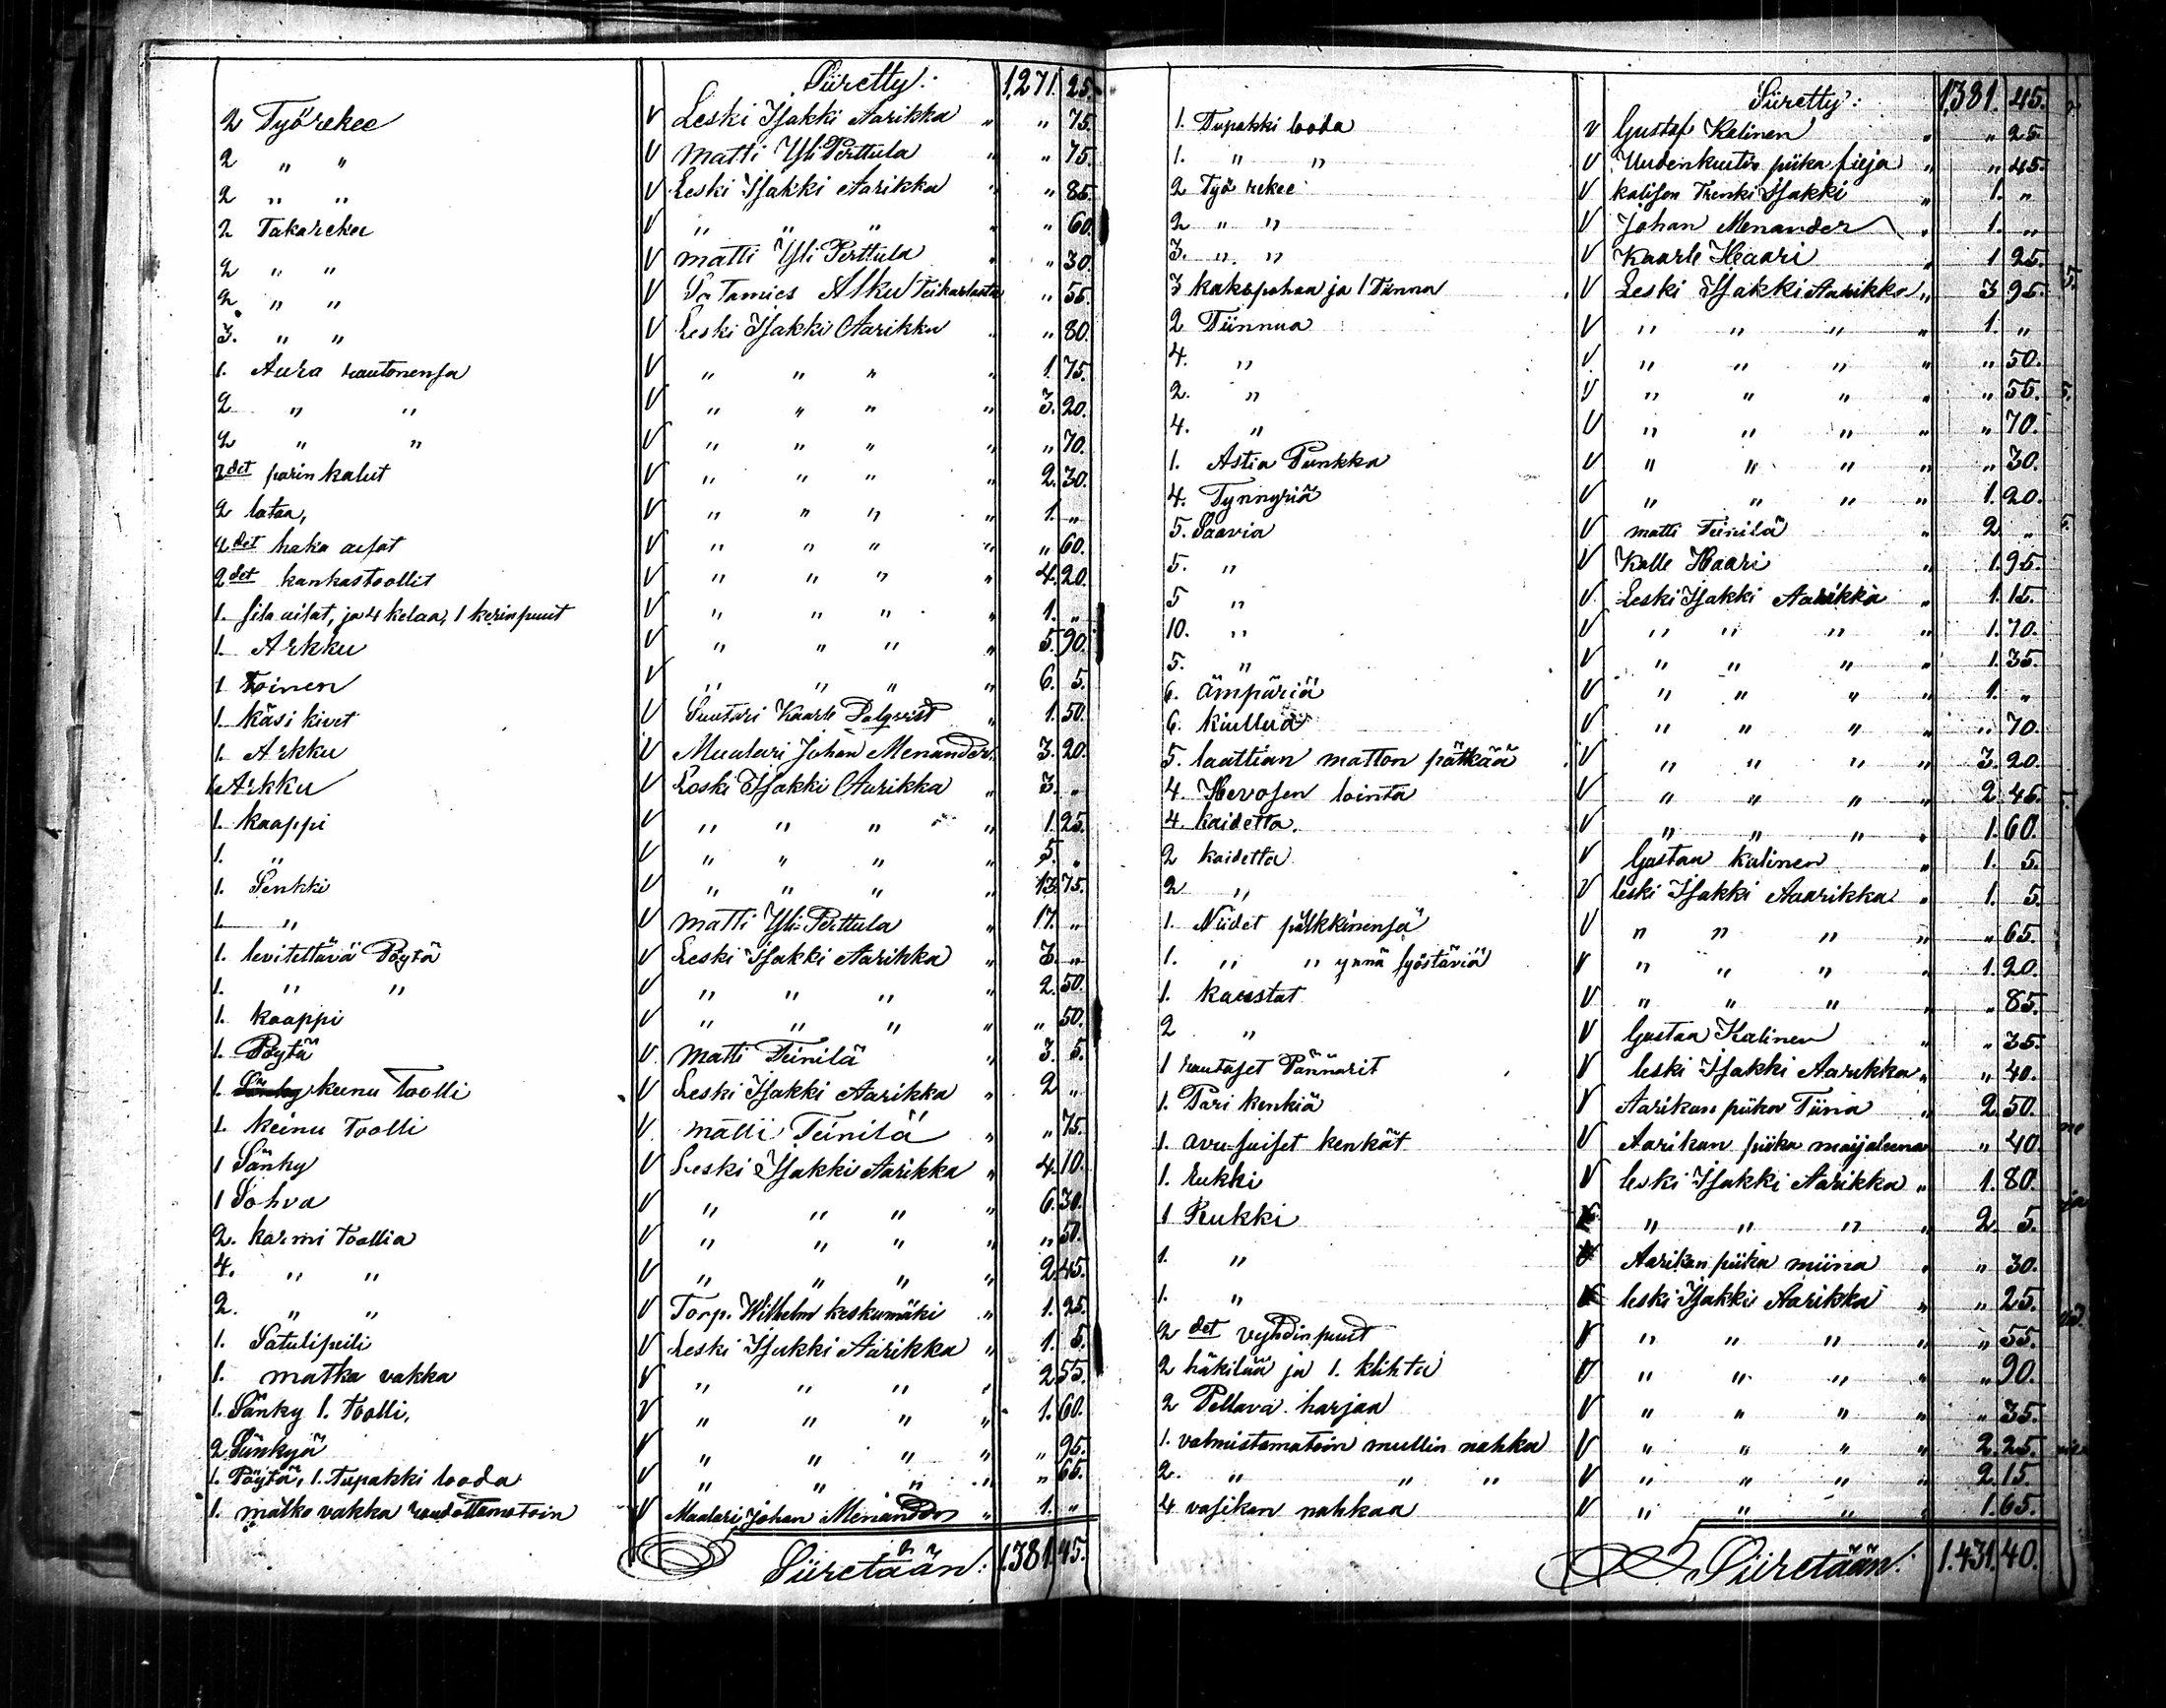 Siiretty: 1,271. 25.
2 Työrekee V Leski Isakki Aarikka " " 75.
2 " " V Matti Yli Perttula " " 75.
2 " " V Leski Isakki Aarikka " " 85.
2 Takarekee V " " " " " 60.
2 " " V Matti Yli Perttula " " 30.
2 " " V Alku " 55.
3. " " V Leski Isakki Aarikka " " 80.
1. Aura rautonensa V " " " " 1. 75.
2 " " V " " " " 3. 20.
2 " " V " " " " " 70.
2det parin kalut V " " " " 2. 30.
2 lataa, V " " " " 1. "
2det haka aisat V " " " " " 60.
2det kankastoollit V " " " " 4. 20.
1. ja 4 kelaa, 1 kerinpuut V " " " " 1. "
1. Arkku V " " " " 5. 90.
1 Toinen V " " " " 6. 5.
1. Käsi kivet V Suutari Kaarle Palqvist " 1. 50.
1. Arkku V Maalari Johan Menander 3. 20.
1. Arkku V Leski Isakki Aarikka " 3. "
1. Kaappi V " " " " 1. 25.
1. " V " " " " 5. "
1. Penkki V " " " " 13. 75.
1. " V Matti Yli-Perttula " 17. "
1. levitettävä Pöytä V Leski Isakki Aarikka " 3. "
1. " " V " " " " 2. 50.
1. Kaappi V " " " " " 50.
1. Pöytä V Matti Teinilä " 3. 5.
1. keinu Toolli V Leski Isakki Aarikka " 2 "
1. Keinu Toolli V Matti Teinilä " " 75.
1 Sänky V Leski Isakki Aarikka " 4. 10.
1 Sohva V " " " " 6. 30.
2. karmi Toollia V " " " " " 50.
4. " " V " " " " 2. 45.
2. " " V Torp. Wilhelm Keskumäki " 1. 25.
1. Satulipeili V Leski Isakki Aarikka " 1. 5.
1. matka vakka V " " " " 2 55.
1. Sänky 1. Toolli, V " " " " 1. 60.
2 Sänkyä V " " " " " 95.
1. Pöytä, 1. Tupakki looda V " " " " " 65.
1. matka vakka raudottamatoin V Maalari Johan Menander " 1. "
Siiretään: 1.381. 45.
Siiretty: 1381. 45.
1. Tupakki looda V Gustaf Kalinen " " 25.
1. " " V Uudenkartin piika " " 45.
2 Työ rekee V Trenki Isakki " 1. "
2 " " V Johan Menander " 1. "
3. " " V Kaarle Haari " 1 25.
3 kakspohaa ja 1 Tiinna V Leski Isakki Aarikka " 3 95.
2 Tiinnua V " " " " 1. "
4. " V " " " " " 50.
2. " V " " " " " 55.
4. " V " " " " " 70.
1. Astia Punkka V " " " " " 30.
4. Tynnyriä V " " " " 1. 20.
5. Saavia V Matti Teinilä " 2 "
5. " V Kalle Haari " 1. 95.
5 " V Leski Isakki Aarikka " 1. 15.
10. " V " " " " 1. 70.
5. " V " " " " 1. 35.
6. Ämpäriä V " " " " 1. "
6. kiullua V " " " " " 70.
5. laattian matton pätkää V " " " " 3. 20.
4. Hevosen lointa V " " " " 2. 45.
4. kaidetta. V " " " " 1. 60.
2 kaidetta V Gustaa Kalinen " 1. 5.
2 " V leski Isakki Aarikka " 1. 5.
1. Niidet V " " " " " 65.
1. " " ynnä syöstäviä V " " " " 1. 20.
1. Kaustat V " " " " " 85.
2 " V Gustaa Kalinen " " 35.
1 rautaset Pännarit V leski Isakki Aarikka " " 40.
1. Pari kenkiä V Aarikan piika Tiina " 2 50.
1. avu-suiset kenkät V Aarikan piika maijaleena " 40.
1. Rukki V leski Isakki Aarikka " 1. 80.
1 Rukki V " " " " 2. 5.
1. " V Aarikan piika miina " " 30.
1. " V leski Isakki Aarikka " " 25.
2 det vyhdinpuut V " " " " " 55.
2 häkilää ja 1. klihta V " " " " " 90.
2 Pellava harjaa V " " " " " 35.
1. valmistamatoin mullin nahka V " " " " 2. 25.
2. " " " V " " " " 2. 15.
4 vasikan nahkaa V " " " " 1. 65.
Siiretään: 1.431. 40.